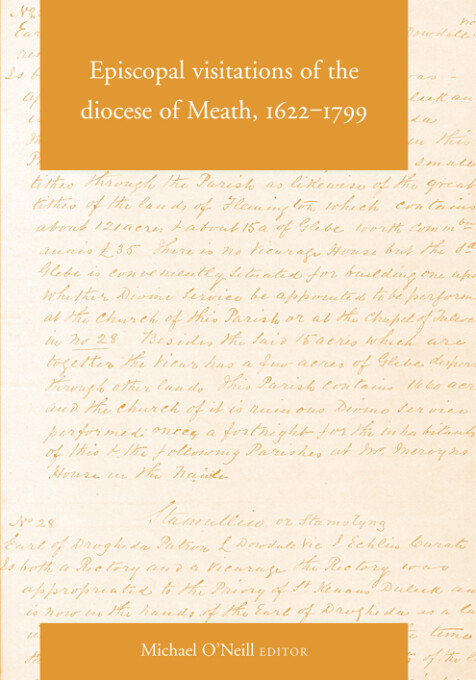 No 2
no
Ear
Dowdall
res
Is b
was -
ap
Duleek an
is
da
in this
P
small
tithes through the Parish as likewise of the great
tithes of the lands of Flemington which contains
about 121 acres & about 15a of Glebe worth comm en
annis £35 There is no Vicarage House but the sd
Glebe is conveniently situated for building one upon
whether Divine Service be appointed to be perform
at the Church of this Parish or at the Chapel of
in no 28 Besides the said 15 acres which are
together the Vicar has a few acres of Glebe disper
through other lands This Parish contains 1660 acr
and the church of it is ruinous Divine service
performed once a fortnight for the inhabitants
of this & the following Parishes at Mr. Mervyns
House in the Naide
No 28 Stamullin or Stamolyng
Earl of Drogheda Patron L Dowdall Vic I Echlin Curate
Is both a Rectory and a Vicarage the Rectory was
appropriated to the Priory of St. Kenans Duleek and
is now in the hands of the Earl of Drogheda as a
time
of the
Episcopal visitations of the
diocese of Meath, 1622–1799
Michael O'Neill EDITOR